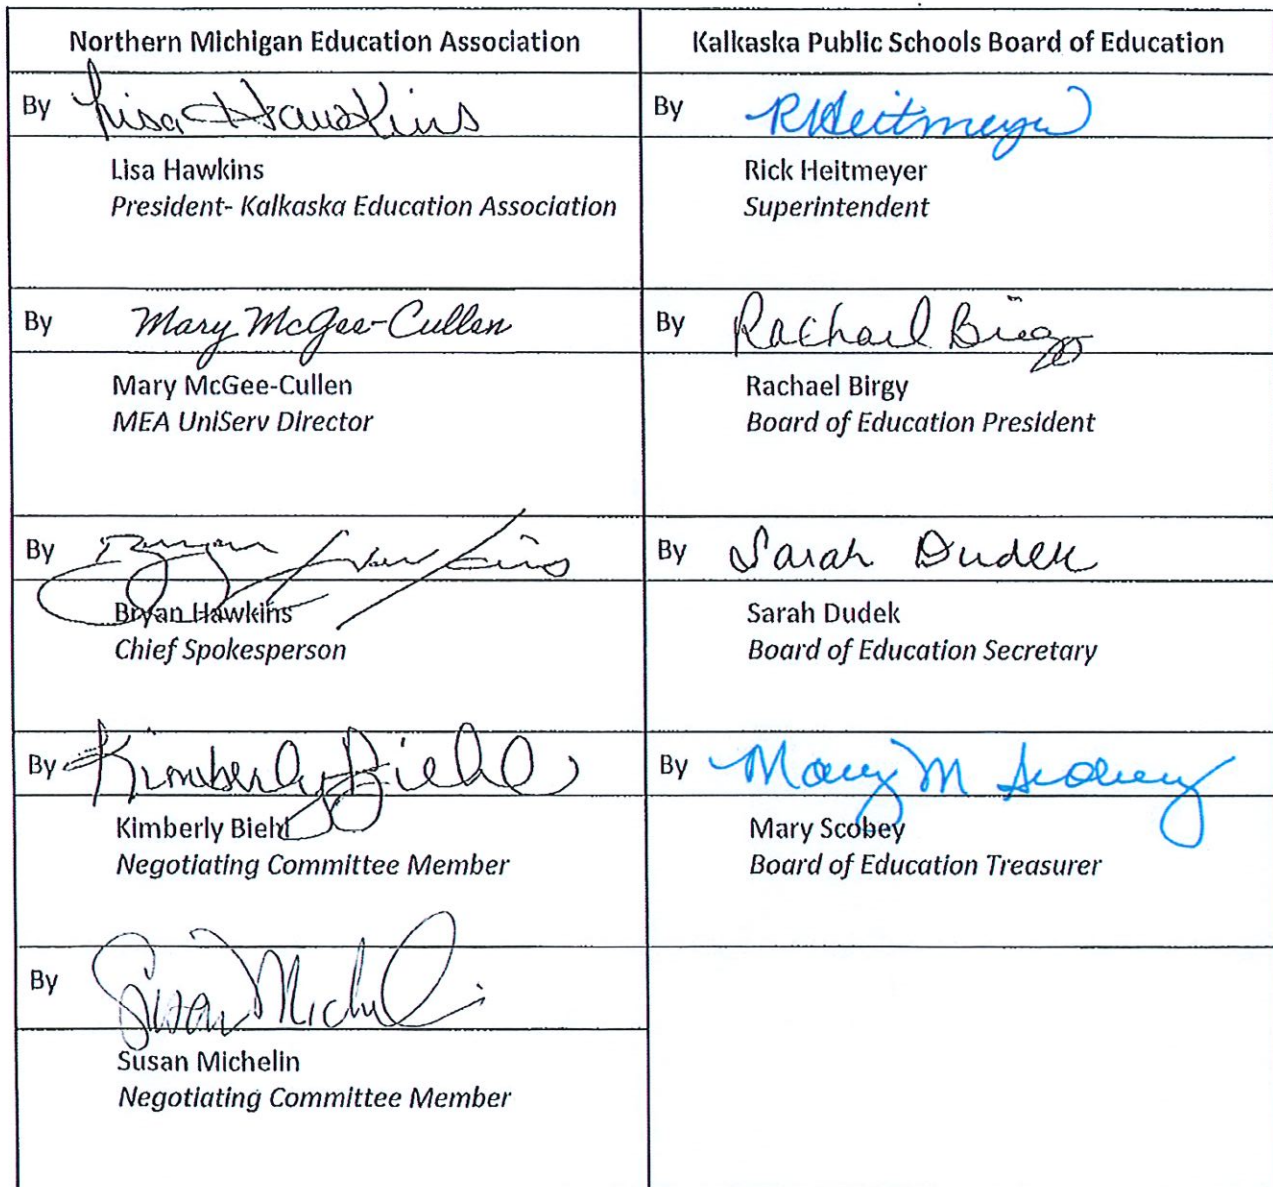 Northern Michigan Education Association
Kalkaska Public Schools Board of Education
By Lisa Hawkins
Lisa Hawkins
President- Kalkaska Education Association
By RHeitmeyer
Rick Heitmeyer
Superintendent
By Mary McGee-Cullen
Mary McGee-Cullen
MEA UniServ Director
By Rachael Birgy
Rachael Birgy
Board of Education President
By Bryan Hawkins
Bryan Hawkins
Chief Spokesperson
By Sarah Dudek
Sarah Dudek
Board of Education Secretary
By Kimberly Biehl
Kimberly Biehl
Negotiating Committee Member
By Mary M Scobey
Mary Scobey
Board of Education Treasurer
By Susan Michelin
Susan Michelin
Negotiating Committee Member